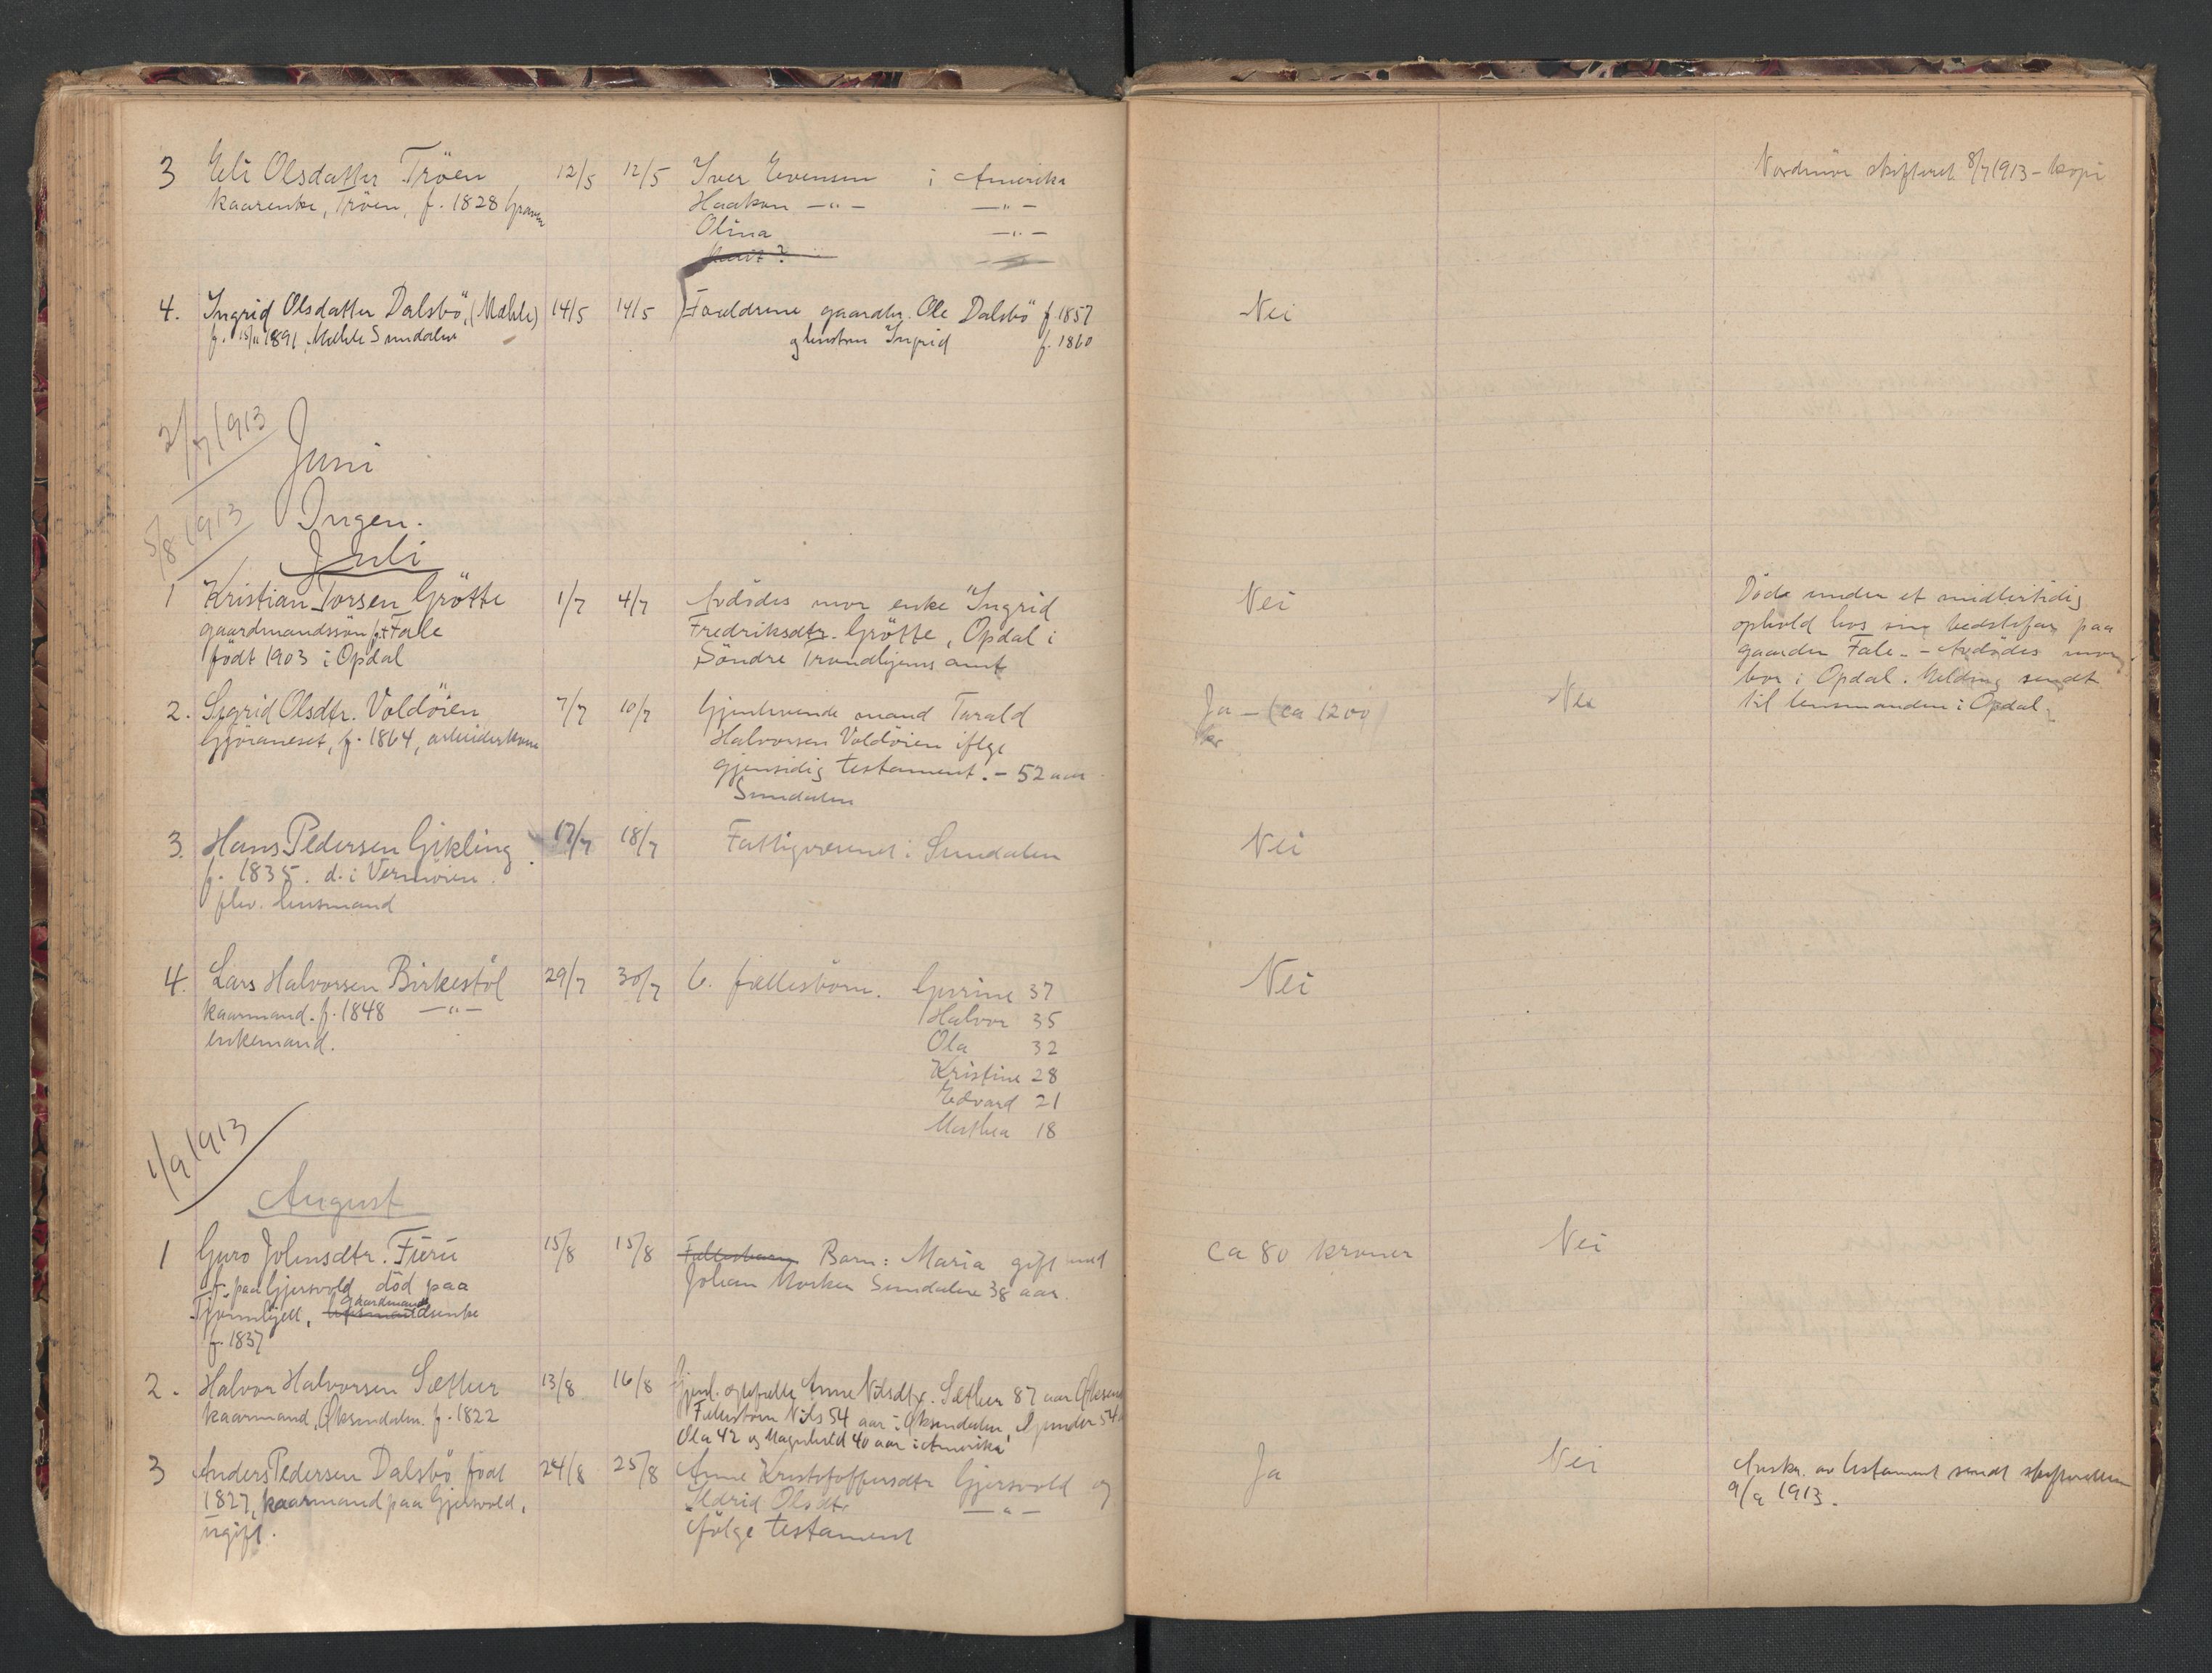 3 Eli Olsdatter Tröen 12/5 12/5 Iver Evensen i Amerika
kaarenke, Tröen, f. 1828 Haakon —"— —"—
Olina —"—
Nordmöre skifteret 8/7 1913 – kopi
4. Ingrid Olsdatter Dalsbö, (Mæhle) 14/5 14/5 Forældrene gaardbr. Ole Dalsbö f 1857 Nei
f. 15/11 1891 Mæhle Sundalen Ingrid f. 1860
2/7 1913
Juni
Ingen.
5/8 1913
Juli
1 Kristian Torsen Grötte 1/7 4/7 Avdödes mor enke Ingrid Nei
gaardmandssön Fale Fredriksdtr. Grötte, Opdal i
födt 1903 i Opdal Söndre Trondhjems amt
Döde under et midlertidig
ophold hos sin bedstefar paa
gaarden Fale. – Avdödes mor
bor i Opdal. Melding sendt
til lensmanden i Opdal.
2. Sigrid Olsdtr. Voldöien 7/7 10/7 Gjenlevende mand Tarald Ja – (ca 1200 Nei
Gjöraneset, f. 1864, arbeiderkone Halvorsen Voldöien iflge kr
gjensidig testament. – 52 aar
Sundalen
3. Hans Pedersen Gikling 17/7 18/7 Fattigvæsenet i Sundalen Nei
f. 1835. d. i Vermöien.
flv. lensmand
4. Lars Halvorsen Birkestöl 29/7 30/7 6. fællesbörn. Gurine 37 Nei
kaarmand. f. 1848 —"— Halvor 35
enkemand. Ola 32
Kristine 28
Edvard 21
Marthea 18
1/9 1913
August
1 Guro Johnsdtr. Furu 15/8 15/8 Fællesbarn Barn: Maria gift med ca 80 kroner Nei
f. paa Gjersvold död paa Johan Morken Sundalen 38 aar.
gaardmands
husmandsenke
f. 1837
2. Halvor Halvorsen Sæther 13/8 16/8 Gjenl. egtefælle Anne Nilsdtr. Sæther 87 aar
kaarmand, Öksendalen. f. 1822 Fællesbörn Nils 54 aar i Öksendalen, 54
Ola 42 og Magnhild 40 aar i Amerika
3 Anders Pedersen Dalsbö födt 24/8 25/8 Anne Kristofersdtr Gjersvold og Ja Nei
1827, kaarmand paa Gjersvold, Ildrid Olsdtr —"—
ugift. ifölge testament
Avskr. av testament sendt skifteretten
9/9 1913.